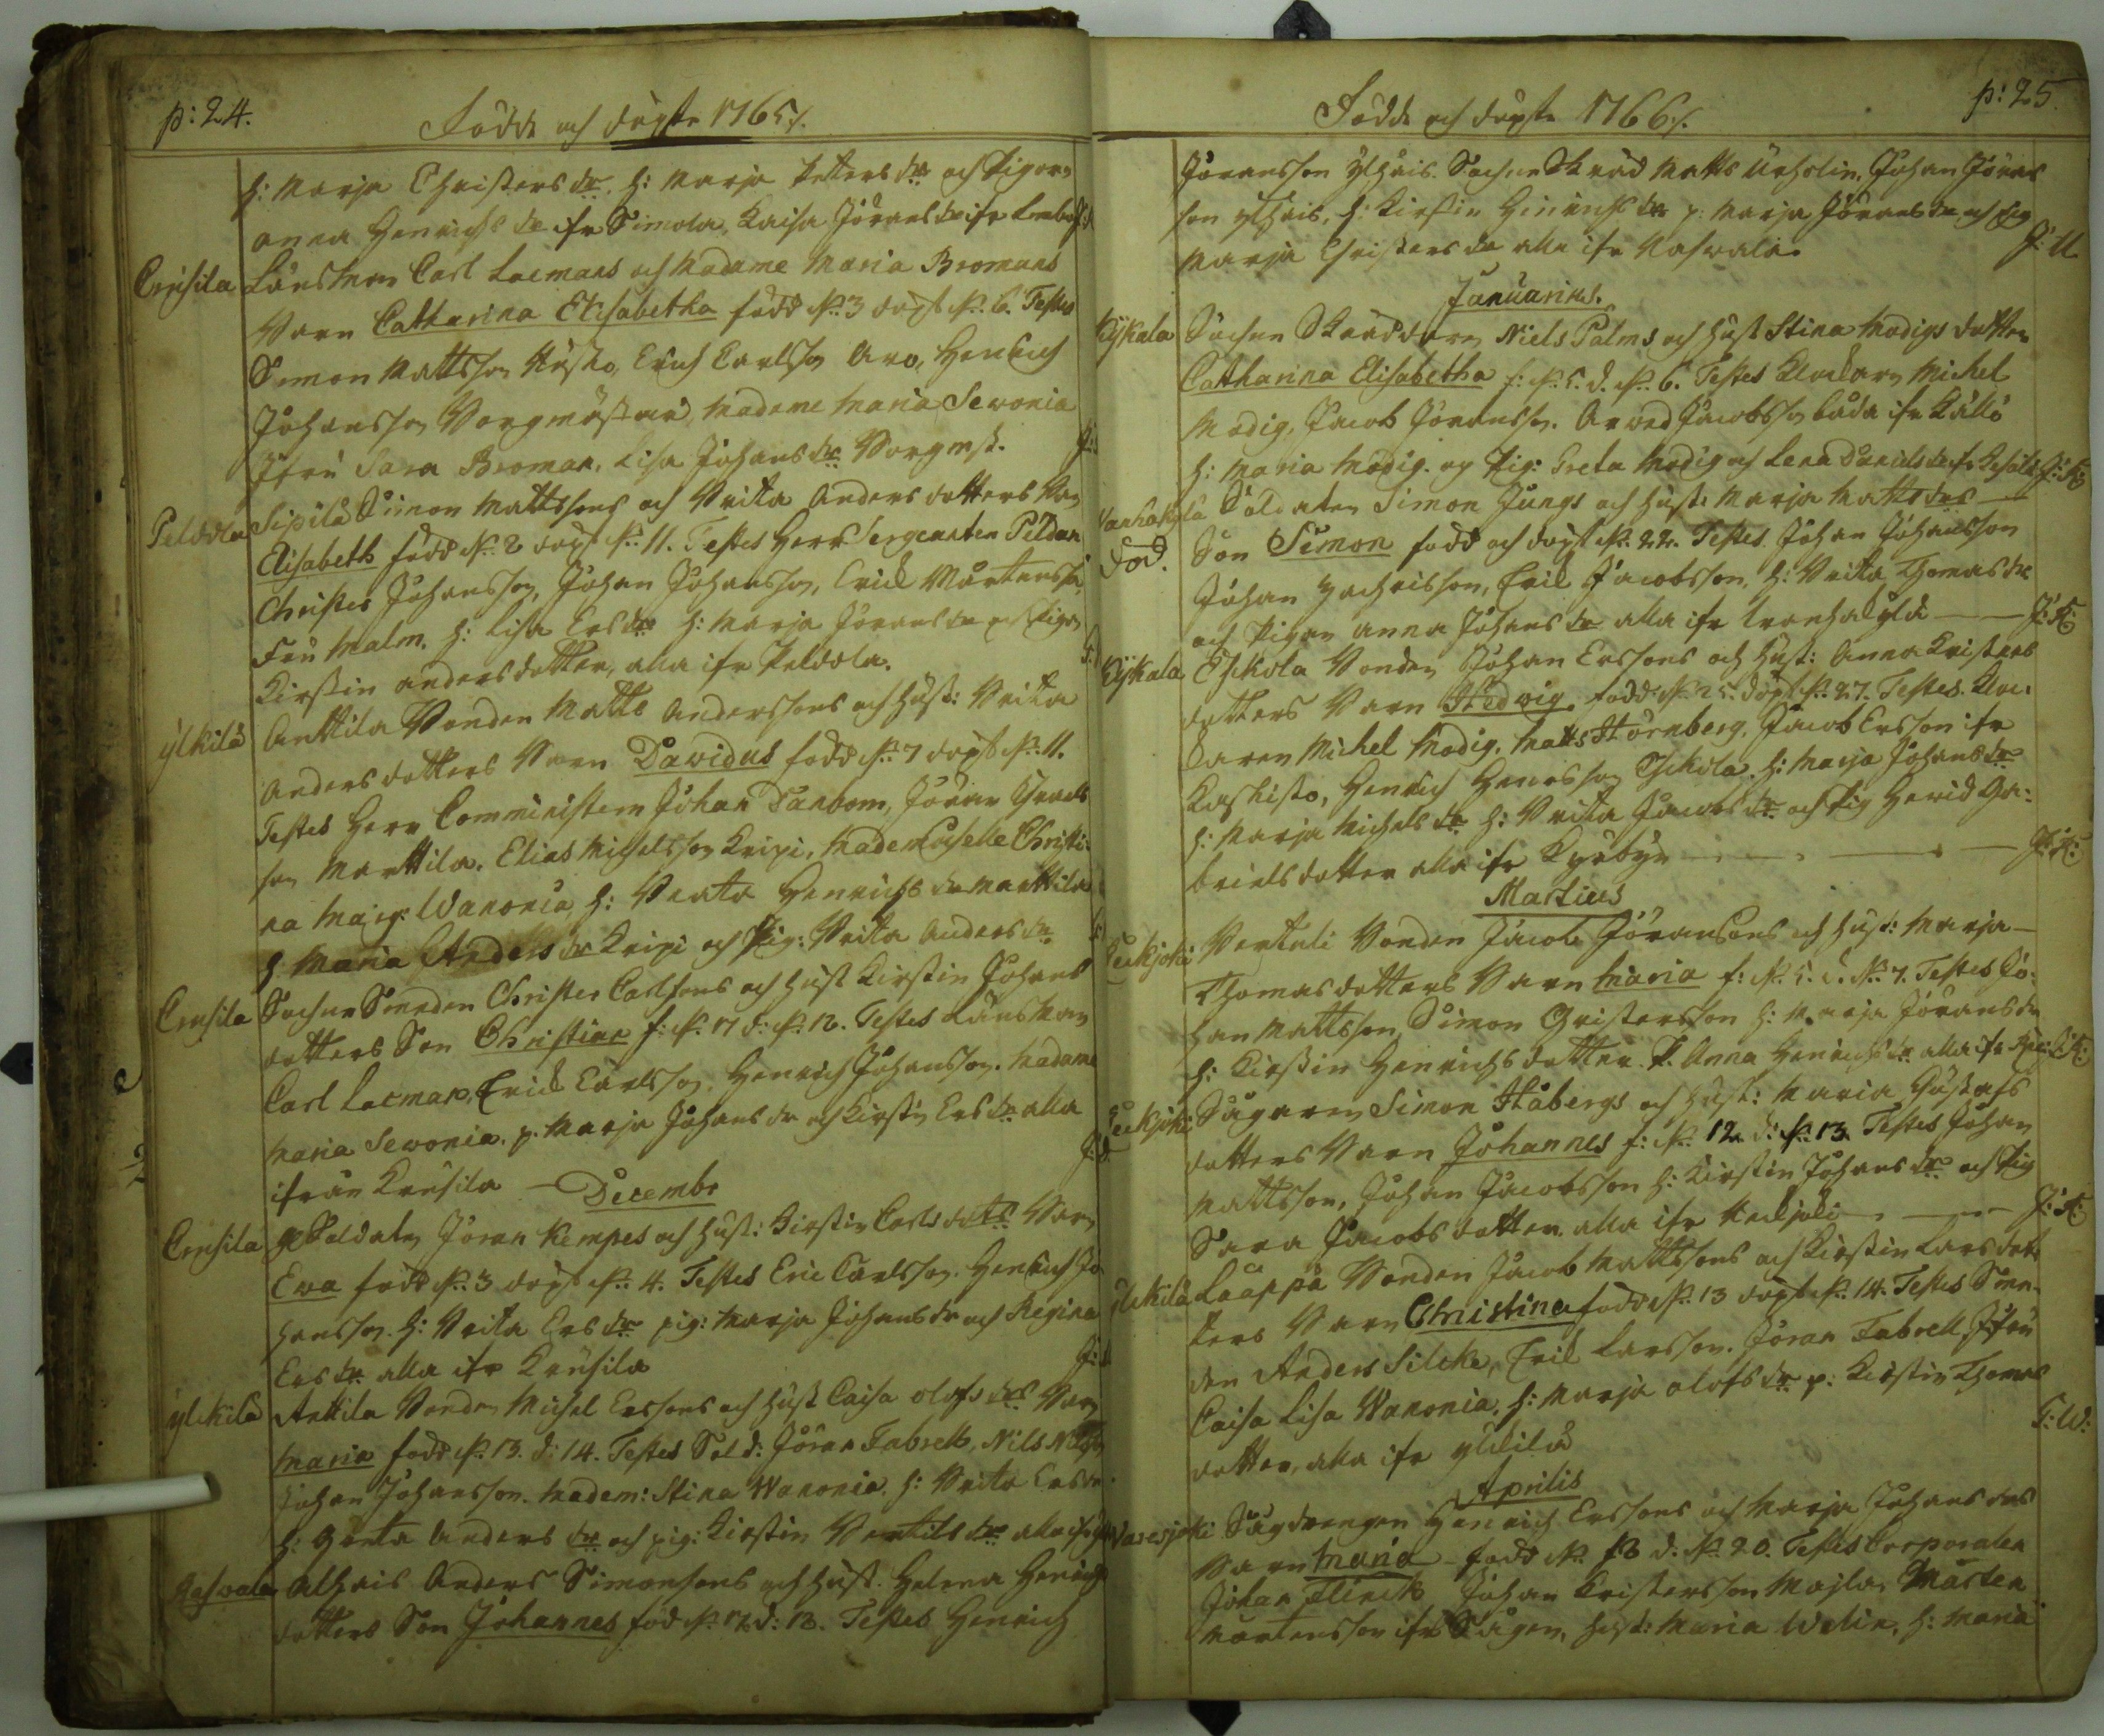 p: 24.
Födde och döpte 1765.
h: Marja Christers dr. h: Marja Petters dr och Pigorn
Anna Henrichs dr ifr Simola, Kaisa Jörans dr ifr
Crusila Länsman Carl Lacmans och Madame Maria Bromans
Barn Catharina Elisabetha född N: 3 döpt N: 6. Testes
Simon Mattsson Husko, Erich Carlsson Aro, Henrich
Johansson Borgmästar, Madame Maria Sewonia
Jfru Sara Broman, Lisa Johans dr Borgmst.
Peldola Sipilä Simon Mattssons och Brita Anders dotters Barn
Elisabeth född N: 2 döpt N: 11. Testes Herr Sergeanten Peldan
Christer Johansson, Johan Johansson, Erick Mårtensson,
Fru Malm, h: Lisa Ers dr h: Marja Jörans dr och Pigan
Kirstin anders dotter, alla ifr Peldola.
Ylkilä Anttila Bonden Matts Anderssons och Hust: Brita
Anders dotters Barn Dawidus född N: 7 döpt N: 11.
Testes Herr Comministern Johan Danbom, Jöran
son Marttila. Elias Michelsson Kripi, Mademoiselle Christi:
na Marg: Wanonia, h: Beata Henrichs dr Marttila
h: Maria Anders dr Kripi och Pig: Brita Anders dr
Crusila Sochne Smeden Christer Carlssons och Hust Kirstin Johans
dotters Son Christian f: N: 17 d: N: 18. Testes Länsman
Carl Lacman, Erick Carlsson, Henrich Johansson. Madame
Maria Sewonia. p. Marja Johans dr och Kirstin Ers dr alla
ifrån Krusila
Decembr
Crusila Soldaten Jöran Kempes och Hust: Kirstin Carls dotters Barn
Ewa född N: 3 döpt N: 4. Testes Eric Carlsson. Henrich Jo
hansson. h: Brita Ers dr pig: Marja Johans dr och Regina
Ers dr alla ifr Krusila
Ylckilä Anttila Bonden Michel Erssons och Hust Caisa Olofs drs Barn
Maria född N: 13. d: 14. Testes Sold: Jöran Fabrell, Nils Nilsson
Johan Johansson. Madem: Stina Wanonia. h: Brita Ers dr.
h: Greta Anders dr och pig: Kirstin Bertils dr alla ifr
Rahwala Alhais Anders Simonsons och Hust. Helena Henrichs
dotters Son Johannes född N: 17 d: 18. Testes Henrich
Födde och döpte 1766.
p: 25.
Jöransson Ylhais. Sochne Skräd Matts Uhrlin, Johan Jörans
son Ylhais, h: Kirstin Henrichs dr p: Marja Jörans dr och Pig
Marja Christers dr alla ifr Rahwala
Januarius.
Kyrkala Sochne Skräddaren Niels Palms och Hust Stina Modigs dotter
Catharina Elisabetha f: N: 5. d. N: 6. Testes Klockaren Michel
Modig, Jacob Jöransson. Arwed Jacobsson båda ifr Kallo
h: Maria Modig. og Pig: Greta Modig och Lena Daniels dr J: K:
Wanhakylä Soldaten Simon Jungs och Hust: Marja Matts drs
död. Son Simon född och döpt N: 22. Testes Johan Johansson
Johan Zachrisson, Erik Jacobsson, h: Brita Thomas dr
och Pigan Anna Johans dr alla ifr Wanhakylä J: K:
Kyrkala Eskola Bonden Johan Erssons och Hust: Anna Kristers
dotters Barn Hedwig född N: 25 döpt N: 27. Testes Kloc:
karen Michel Modig, Matts Störnberg, Jacob Ersson ifr
Kaskisto, Henrich Henrsson Eskola. h: Marja Johans dr
h: Marja Michels dr h: Brita Jacobs dr och Pig Hewid Ga:
briels dotter alla ifr Kyrkbyn J: K:
Martius
Keckjoki Bertuli Bonden Jacob Jöranssons och Hust: Marja
Thomas dotters Barn Maria f: N: 5. d. N: 7. Testes Jo:
han Mattsson, Simon Christersson h: Marja Jörans dr
h: Kirstin Henrichs dotter. P. Anna Henrichs dr alla ifr J: K:
Keckjoki Sågaren Simon Stabergs och Hust: Maria Gustafs
dotters Barn Johannes f: N: 12. d: N: 13. Testes Johan
Mattsson, Johan Jacobsson h: Kirstin Johans dr och Pig
Sara Jacobs dotter alla ifr Keckjoki J: K:
Ylckilä Laappa Bonden Jacob Mattssons och Kirstin Lars dot
ters Barn Christina född N: 13 döpt N: 14. Testes Sme
den Anders Silcke, Erik Larsson. Jöran Fabrell, Jfru
Caisa Lisa Wanonia, h: Marja Olofs dr p: Kirstin Thomas
dotter, alla ifr Ylckilä J: W:
Aprilis
Wares joki Sågdrengen Henrich Erssons och Marja Johans drs
Barn Maria född N: 18 d. N: 20. Testes Corporalen
Johan Flinck Johan Christersson Majla, Mårten
Mårtensson ifr Sågen, Hust: Maria Welin, h: Maria